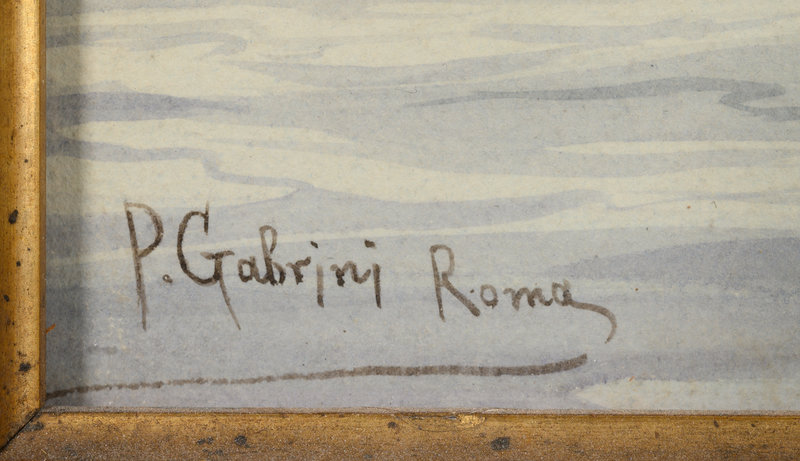 P. Gabrini Roma